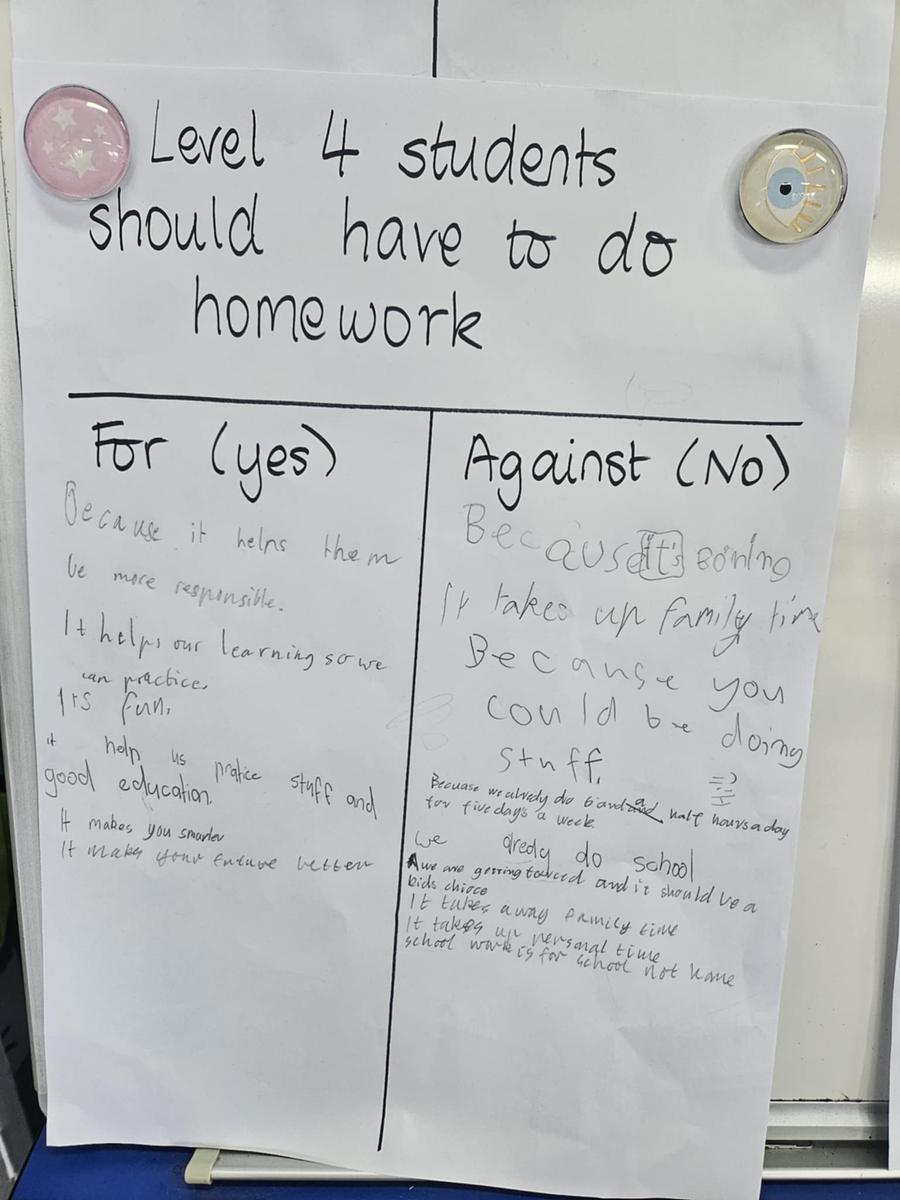 Level 4 students
should have to do
homework
For (yes)
Because it helps them
be more responsible.
It helps our learning so we
can practice.
Its fun.
it help us pratice stuff and
good education.
It makes you smarter
It makes your future better
Against (No)
Because it's boring
It takes up family time
Because you
could be doing
stuff.
Because we alredy do 6 and half hours a day
for five days a week.
we alredy do school
we are getting forced and it should be a
kids chioce
It takes away family time
It takes up personal time
school work is for school not home